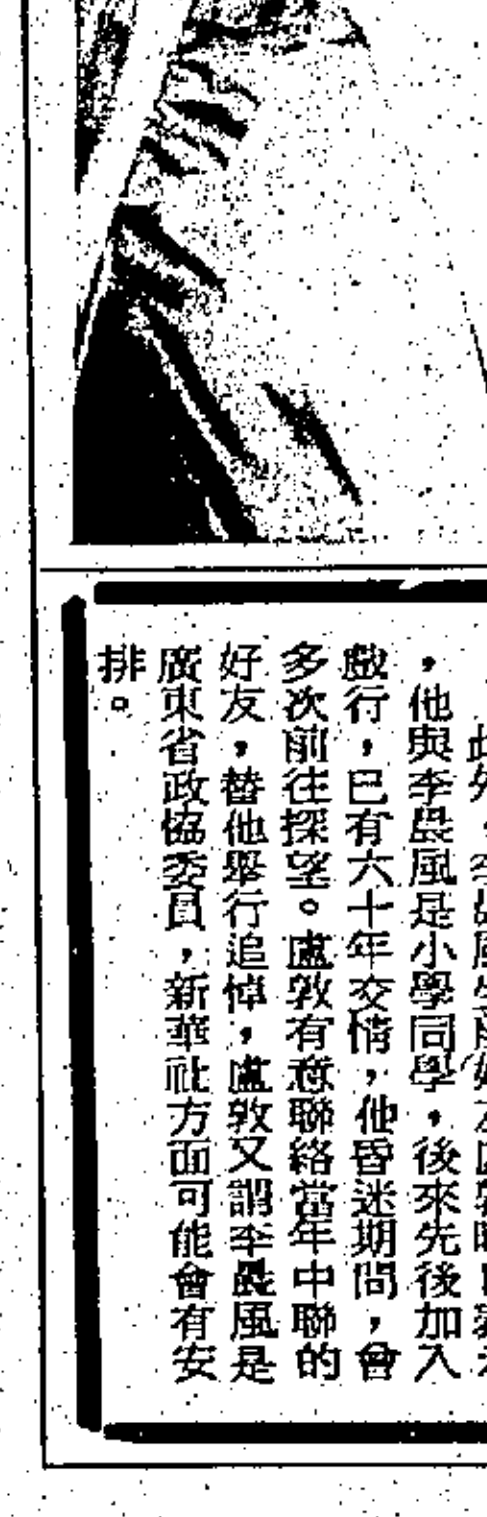 此外，李晨風生前好友盧敦
，他與李晨風是小學同學，後來先後加入
戲行，已有六十年交情，他昏迷期間，曾
多次前往探望。盧敦有意聯絡當年中聯的
好友，替他舉行追悼，盧敦又謂李晨風是
廣東省政協委員，新華社方面可能會有安
排。